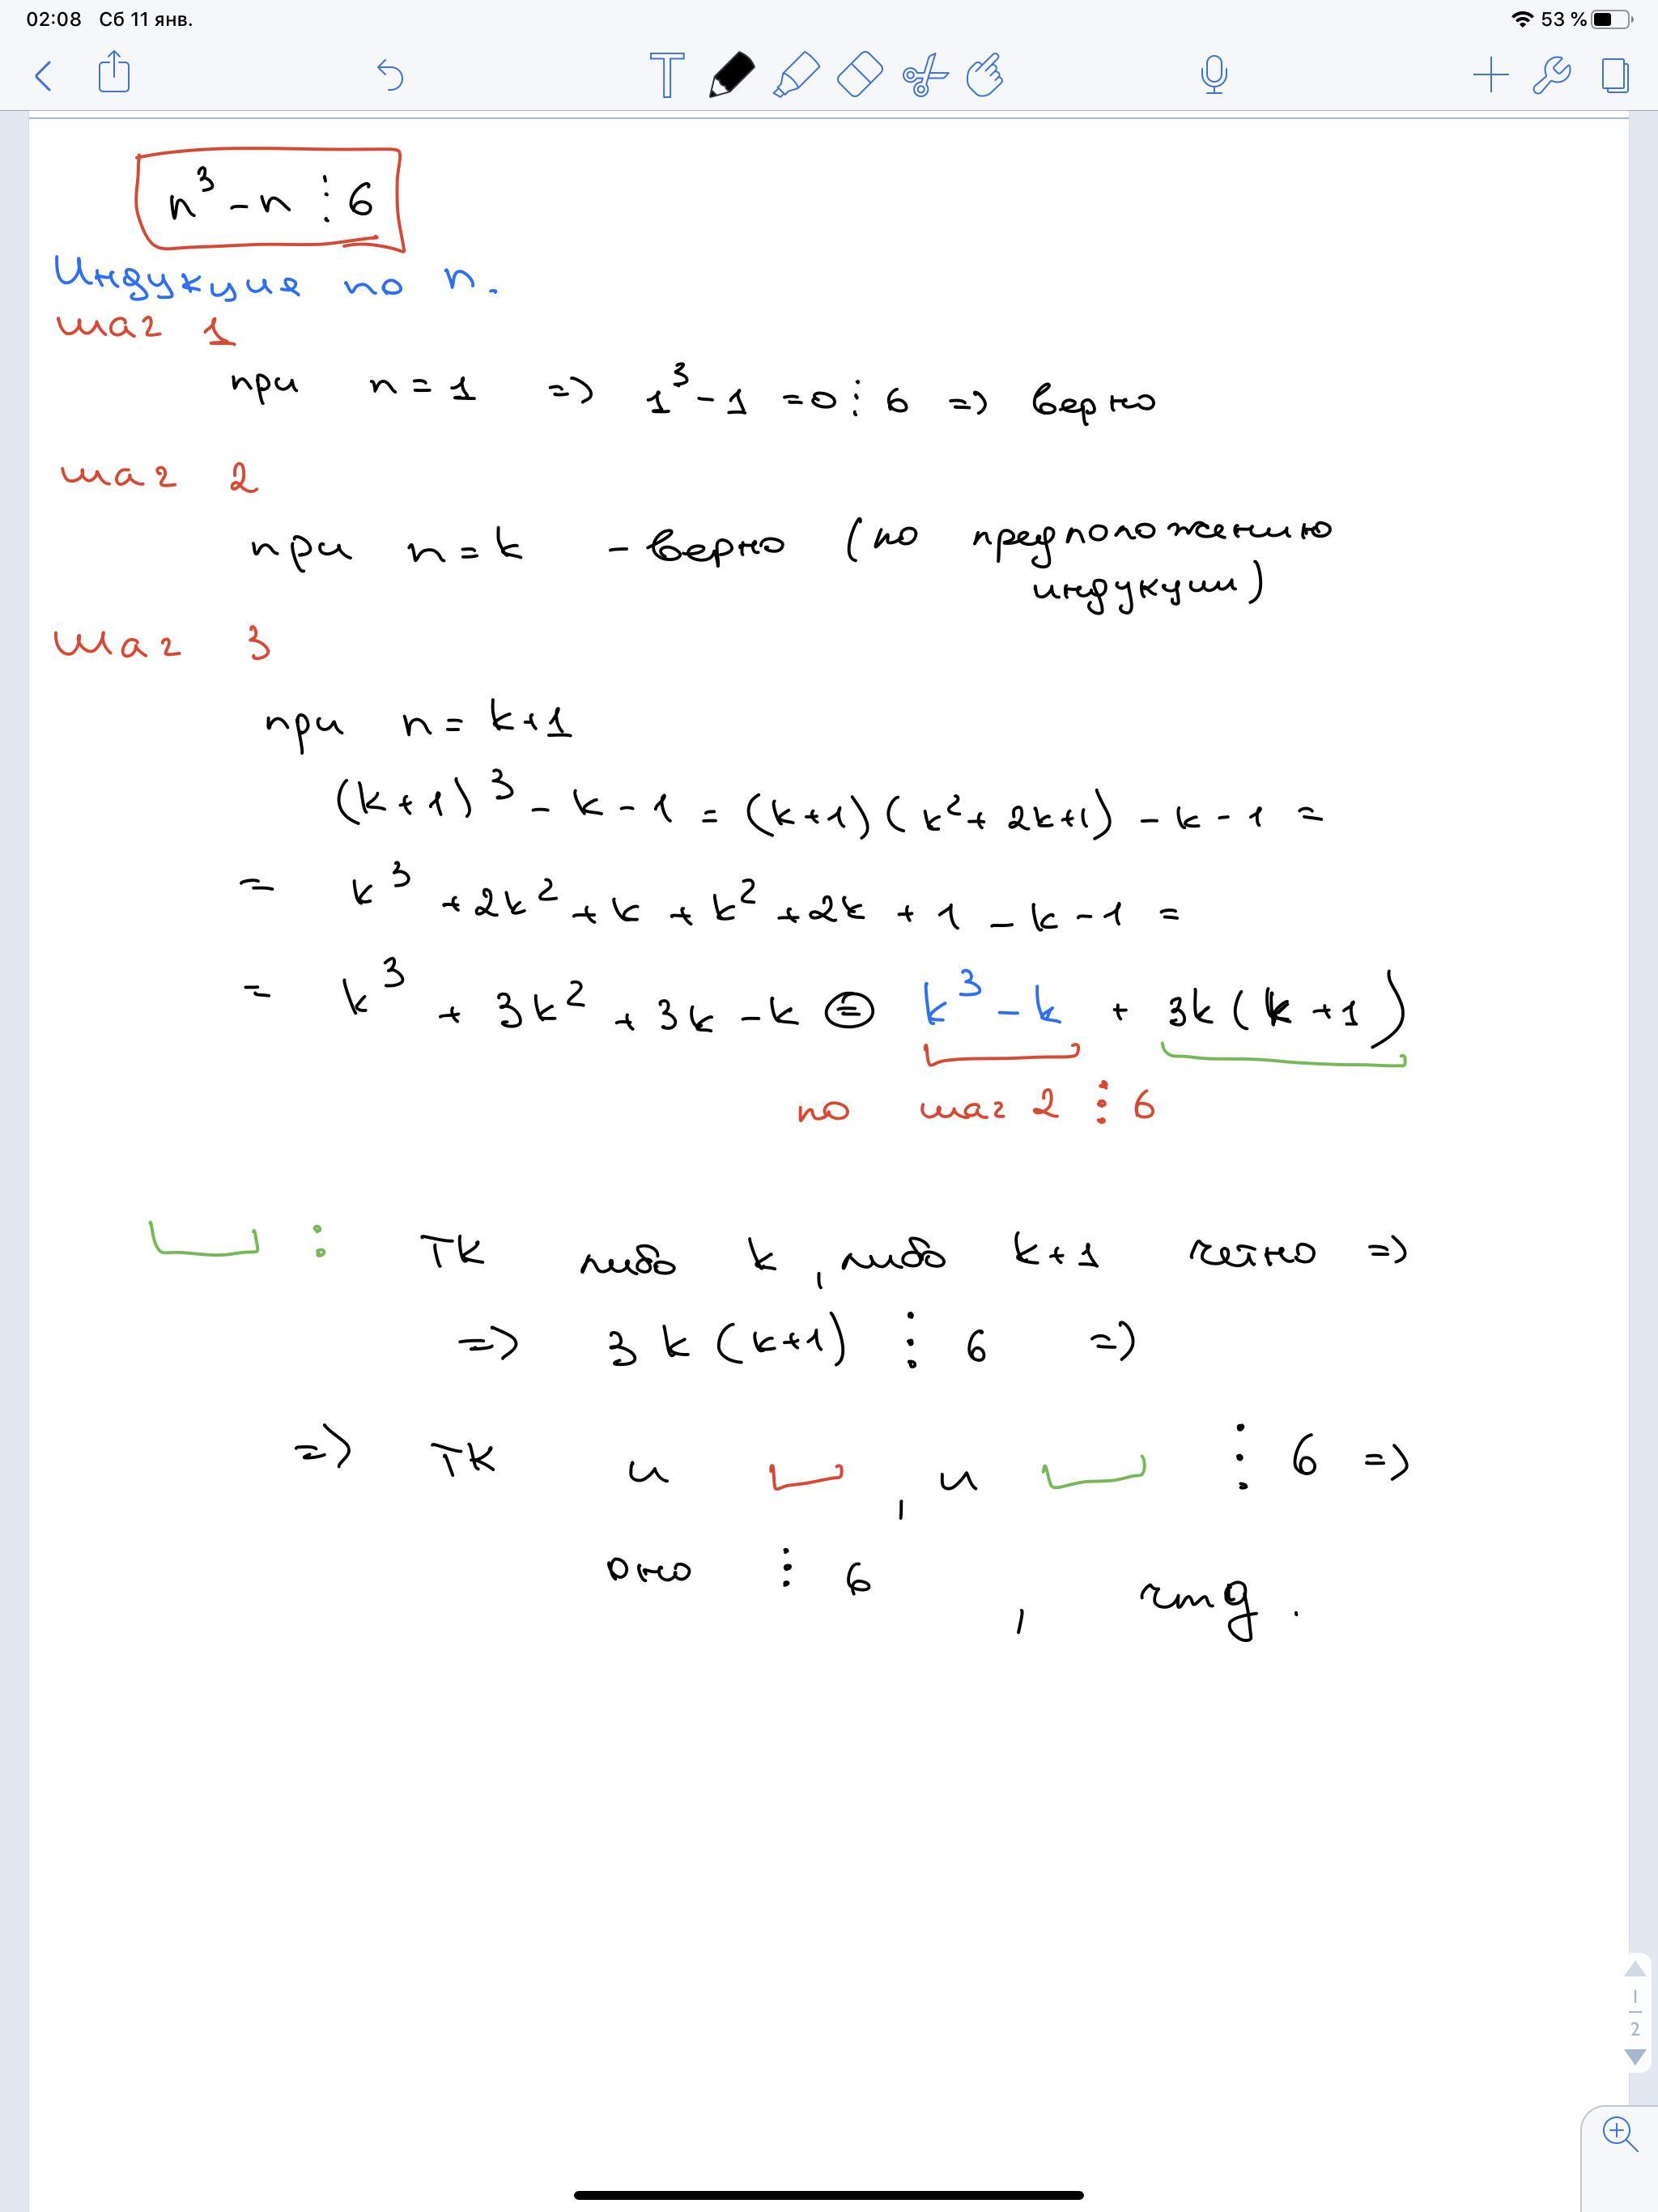 02:08 Сб 11 янв. 53 %
T
n³ - n ⋮ 6
Индукция по n.
шаг 1
при n = 1 => 1³ - 1 = 0 ⋮ 6 => верно
шаг 2
при n = k - верно (по предположению
индукции)
шаг 3
при n = k+1
(k+1)³ - k - 1 = (k+1)(k² + 2k+1) - k - 1 =
= k³ + 2k² + k + k² + 2k + 1 - k - 1 =
= k³ + 3k² + 3k - k = k³ - k + 3k(k+1)
по шаг 2 ⋮ 6
: ТК либо k, либо k+1 четно =>
=> 3k(k+1) ⋮ 6 =>
=> ТК и , и ⋮ 6 =>
оно ⋮ 6, чтд.
1
2